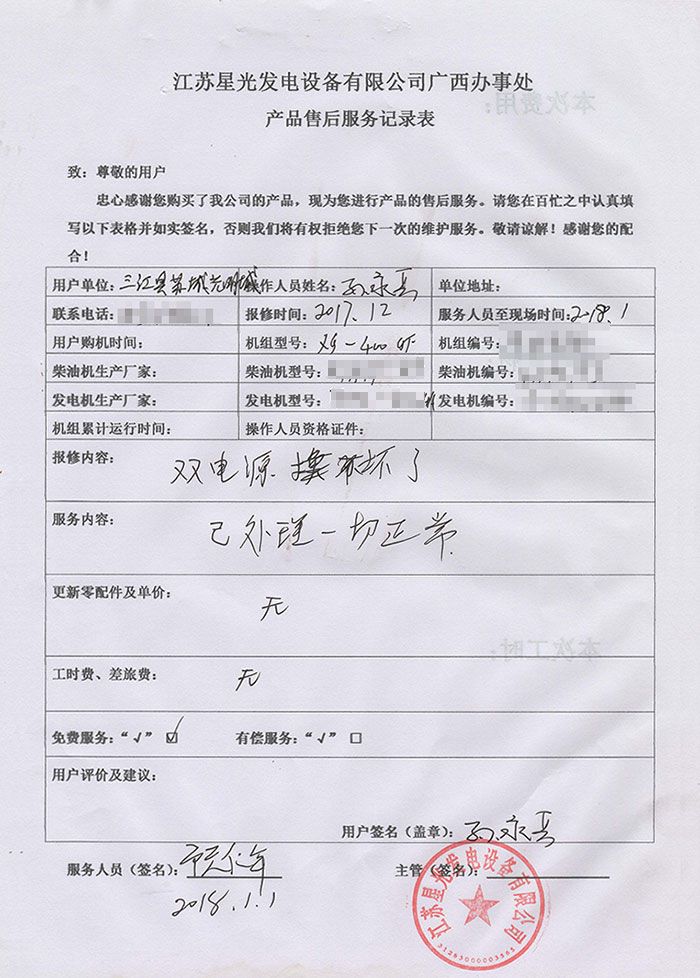 江苏星光发电设备有限公司广西办事处
产品售后服务记录表
致：尊敬的用户
忠心感谢您购买了我公司的产品，现为您进行产品的售后服务。请您在百忙之中认真填
写以下表格并如实签名，否则我们将有权拒绝您下一次的维护服务。敬请谅解！感谢您的配
合！
用户单位：三江县 操作人员姓名： 单位地址：
联系电话： 报修时间：2017.12 服务人员至现场时间：2018.1
用户购机时间： 机组型号： 机组编号：
柴油机生产厂家： 柴油机型号： 柴油机编号：
发电机生产厂家： 发电机型号： 发电机编号：
机组累计运行时间： 操作人员资格证件：
报修内容： 双电源 坏了
服务内容： 已处理一切正常
更新零配件及单价： 无
工时费、差旅费： 无
免费服务：“√” ☑ 有偿服务：“√” □
用户评价及建议：
用户签名（盖章）：
服务人员（签名）： 主管（签名）：
2018.1.1
江苏星光发电设备有限公司
本次费用：
本次工时：